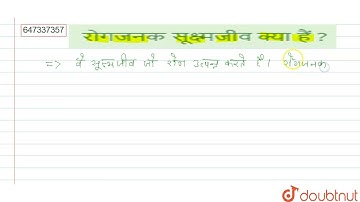 647337357
रोगजनक सूक्ष्मजीव क्या हैं ?
=> वे सूक्ष्मजीव जो रोग उत्पन्न करते हैं। रोगजनक
doubtnut